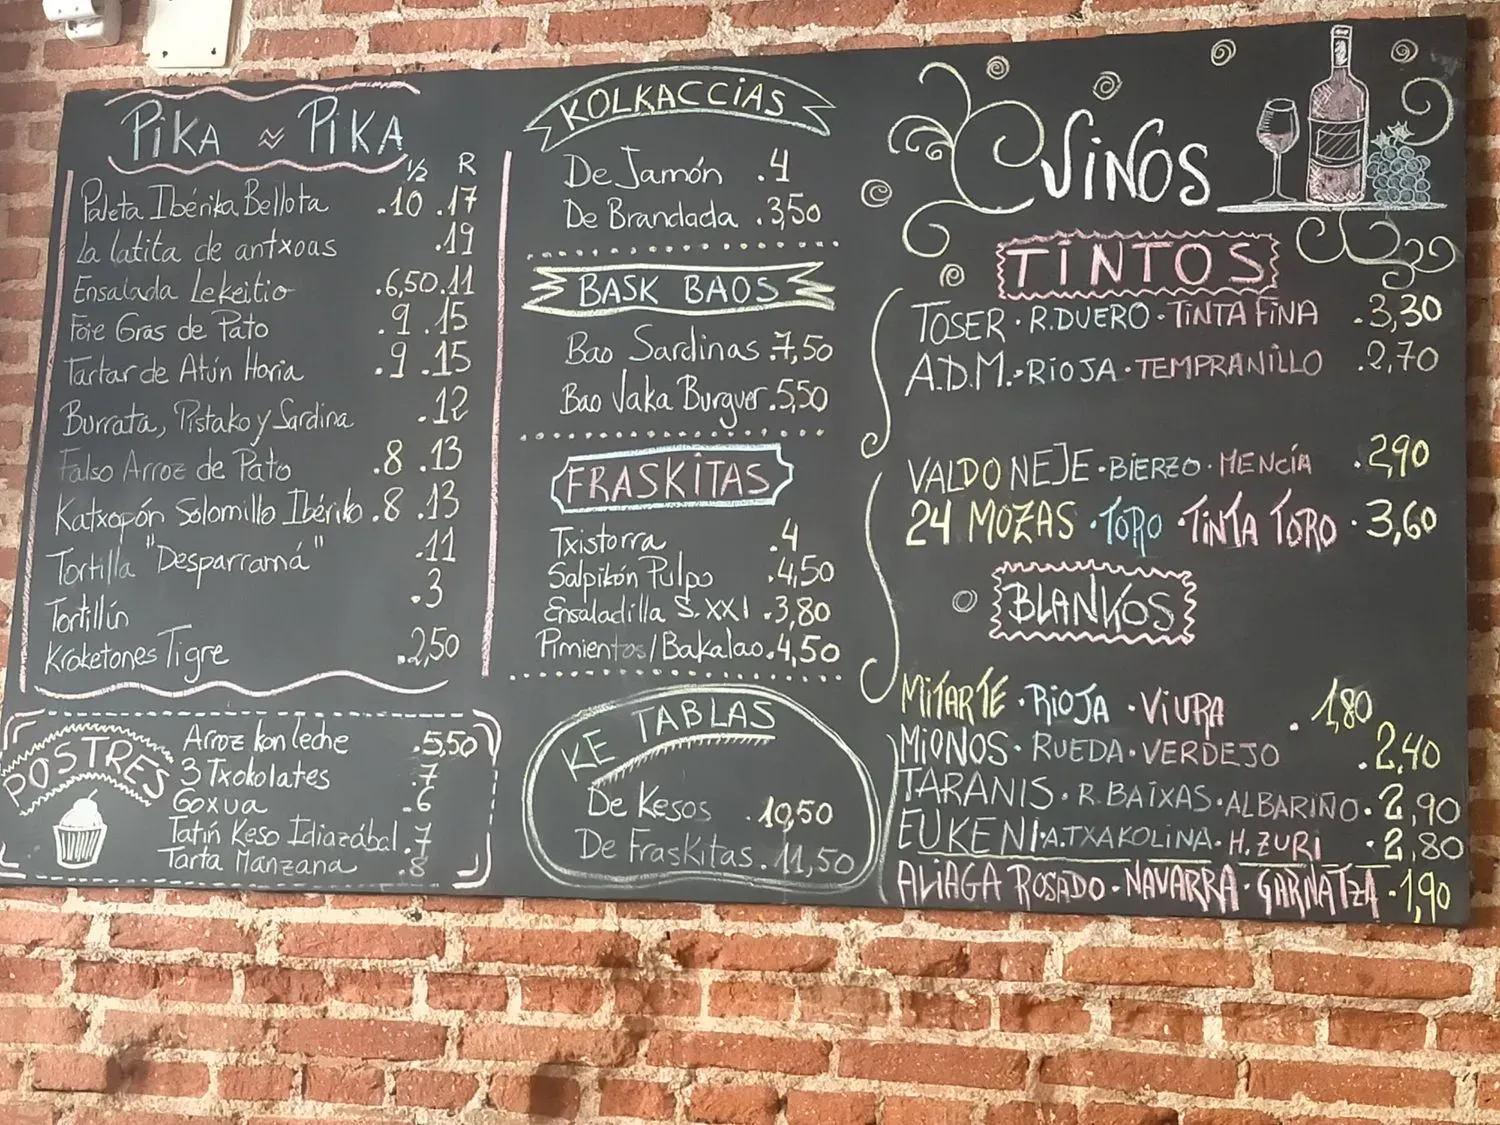 PiKA ≈ PiKA
1/2 R
Paleta Ibérika Bellota .10 .17
La latita de antxoas .19
Ensalada Lekeitio .6,50 .11
Foie Gras de Pato .9 .15
Tartar de Atún Horia .9 .15
Burrata, Pistako y Sardina .12
Falso Arroz de Pato .8 .13
Katxopón Solomillo Ibériko .8 .13
Tortilla "Desparramá" .11
Tortillín .3
Kroketones Tigre .2,50
POSTRES
Arroz kon leche .5,50
3 Txokolates .7
Goxua .6
Tatín Keso Idiazábal .7
Tarta Manzana .8
KOLKACCiAS
De Jamón .4
De Brandada .3,50
BASK BAOS
Bao Sardinas .7,50
Bao Vaka Burguer .5,50
FRASKiTAS
Txistorra .4
Salpikón Pulpo .4,50
Ensaladilla S. XXI .3,80
Pimientos/Bakalao .4,50
KE TABLAS
De Kesos .10,50
De Fraskitas .11,50
ViNOS
TiNTOS
TOSER · R.DUERO · TiNTA FiNA .3,30
A.D.M. · RiOJA · TEMPRANiLLO .2,70
VALDONEJE · BiERZO · MENCÍA .2,90
24 MOZAS · TORO · TiNTA TORO .3,60
BLANKOS
MiTARTE · RiOJA · ViURA .1,80
MiONOS · RUEDA · VERDEJO .2,40
TARANIS · R.BAiXAS · ALBARiÑO .2,90
EUKENI · A.TXAKOLINA · H. ZURI .2,80
ALiAGA ROSADO · NAVARRA · GARNATZA .1,90